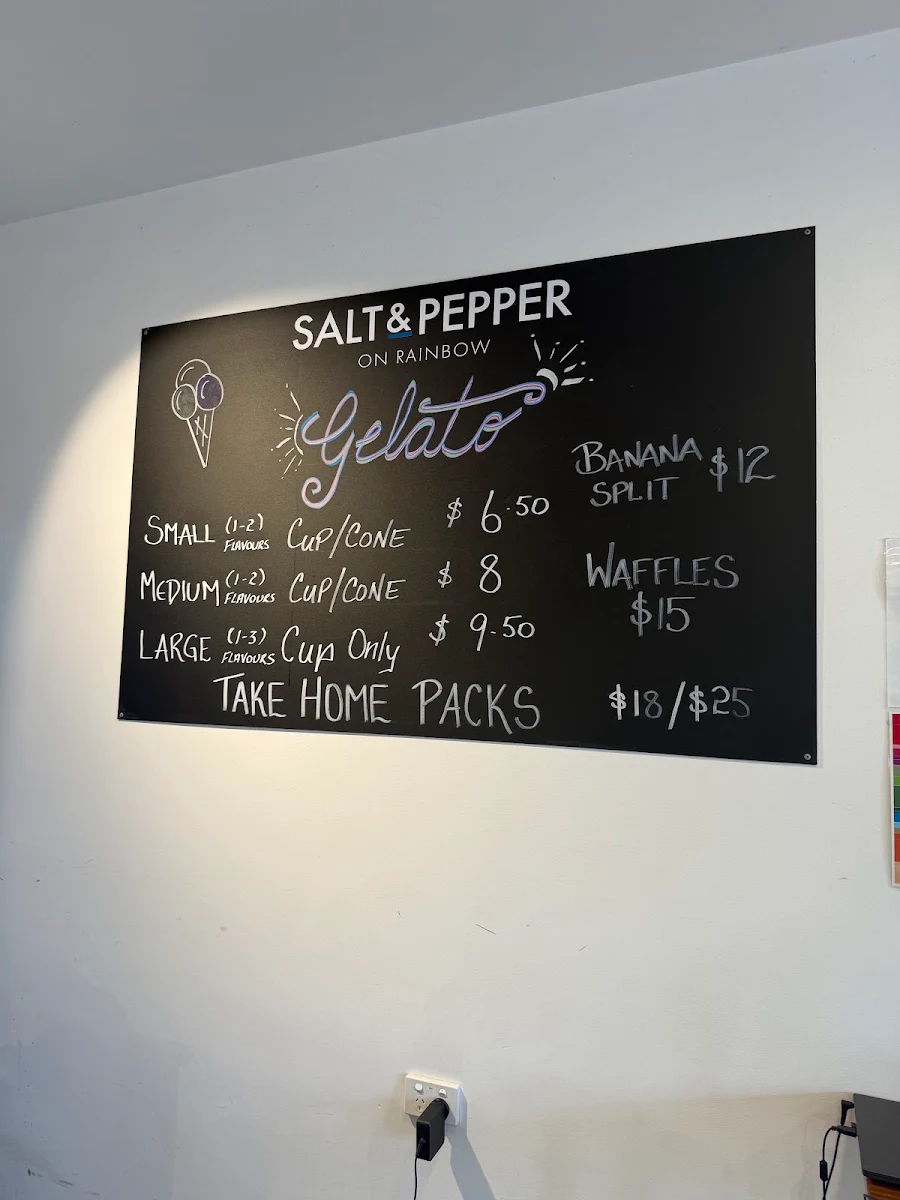 SALT & PEPPER
ON RAINBOW
Gelato
SMALL (1-2) FLAVOURS CUP/CONE $ 6.50
MEDIUM (1-2) FLAVOURS CUP/CONE $ 8
LARGE (1-3) FLAVOURS Cup Only $ 9.50
TAKE HOME PACKS $18/$25
BANANA SPLIT $12
WAFFLES
$15